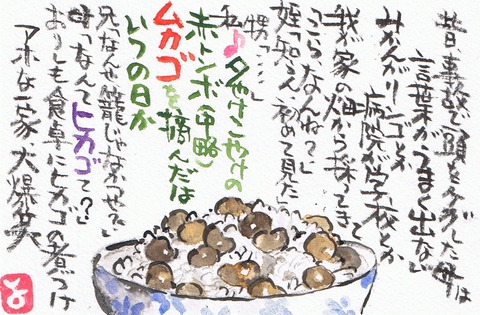 昔事故で頭をケガした母は
言葉がうまく出ない
みかんがリンゴとか
病院が学校とか
我が家の畑から採ってきて
「こらなんねて」
姪「知らん、初めて見た」
甥「……」
私♪夕やけこやけの
赤トンボ(中略)
ムカゴを摘んだは
いつの日か
兄「なんや籠じゃなか
「なんてヒカゴて?」
おりしも食卓にヒカゴの煮つけ
アホな一家、大爆笑